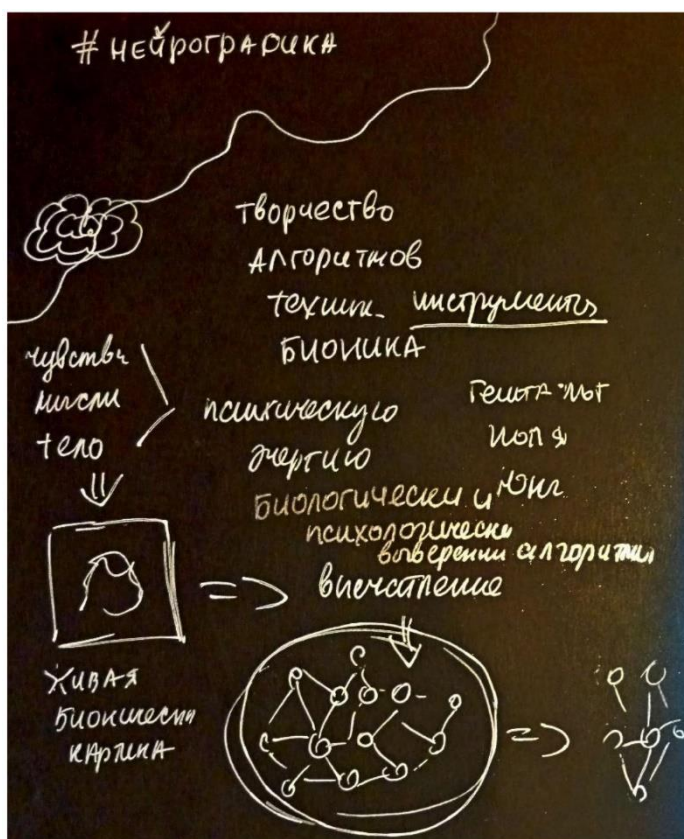 #нейрографика
творчество
алгоритмов
техник инструменты
БИОНИКА
чувства
мысли
тело
психическую
энергию
гештальт
Юнг
биологически и
психологически
выверении алгоритм
впечатление
живая
бионически
картина